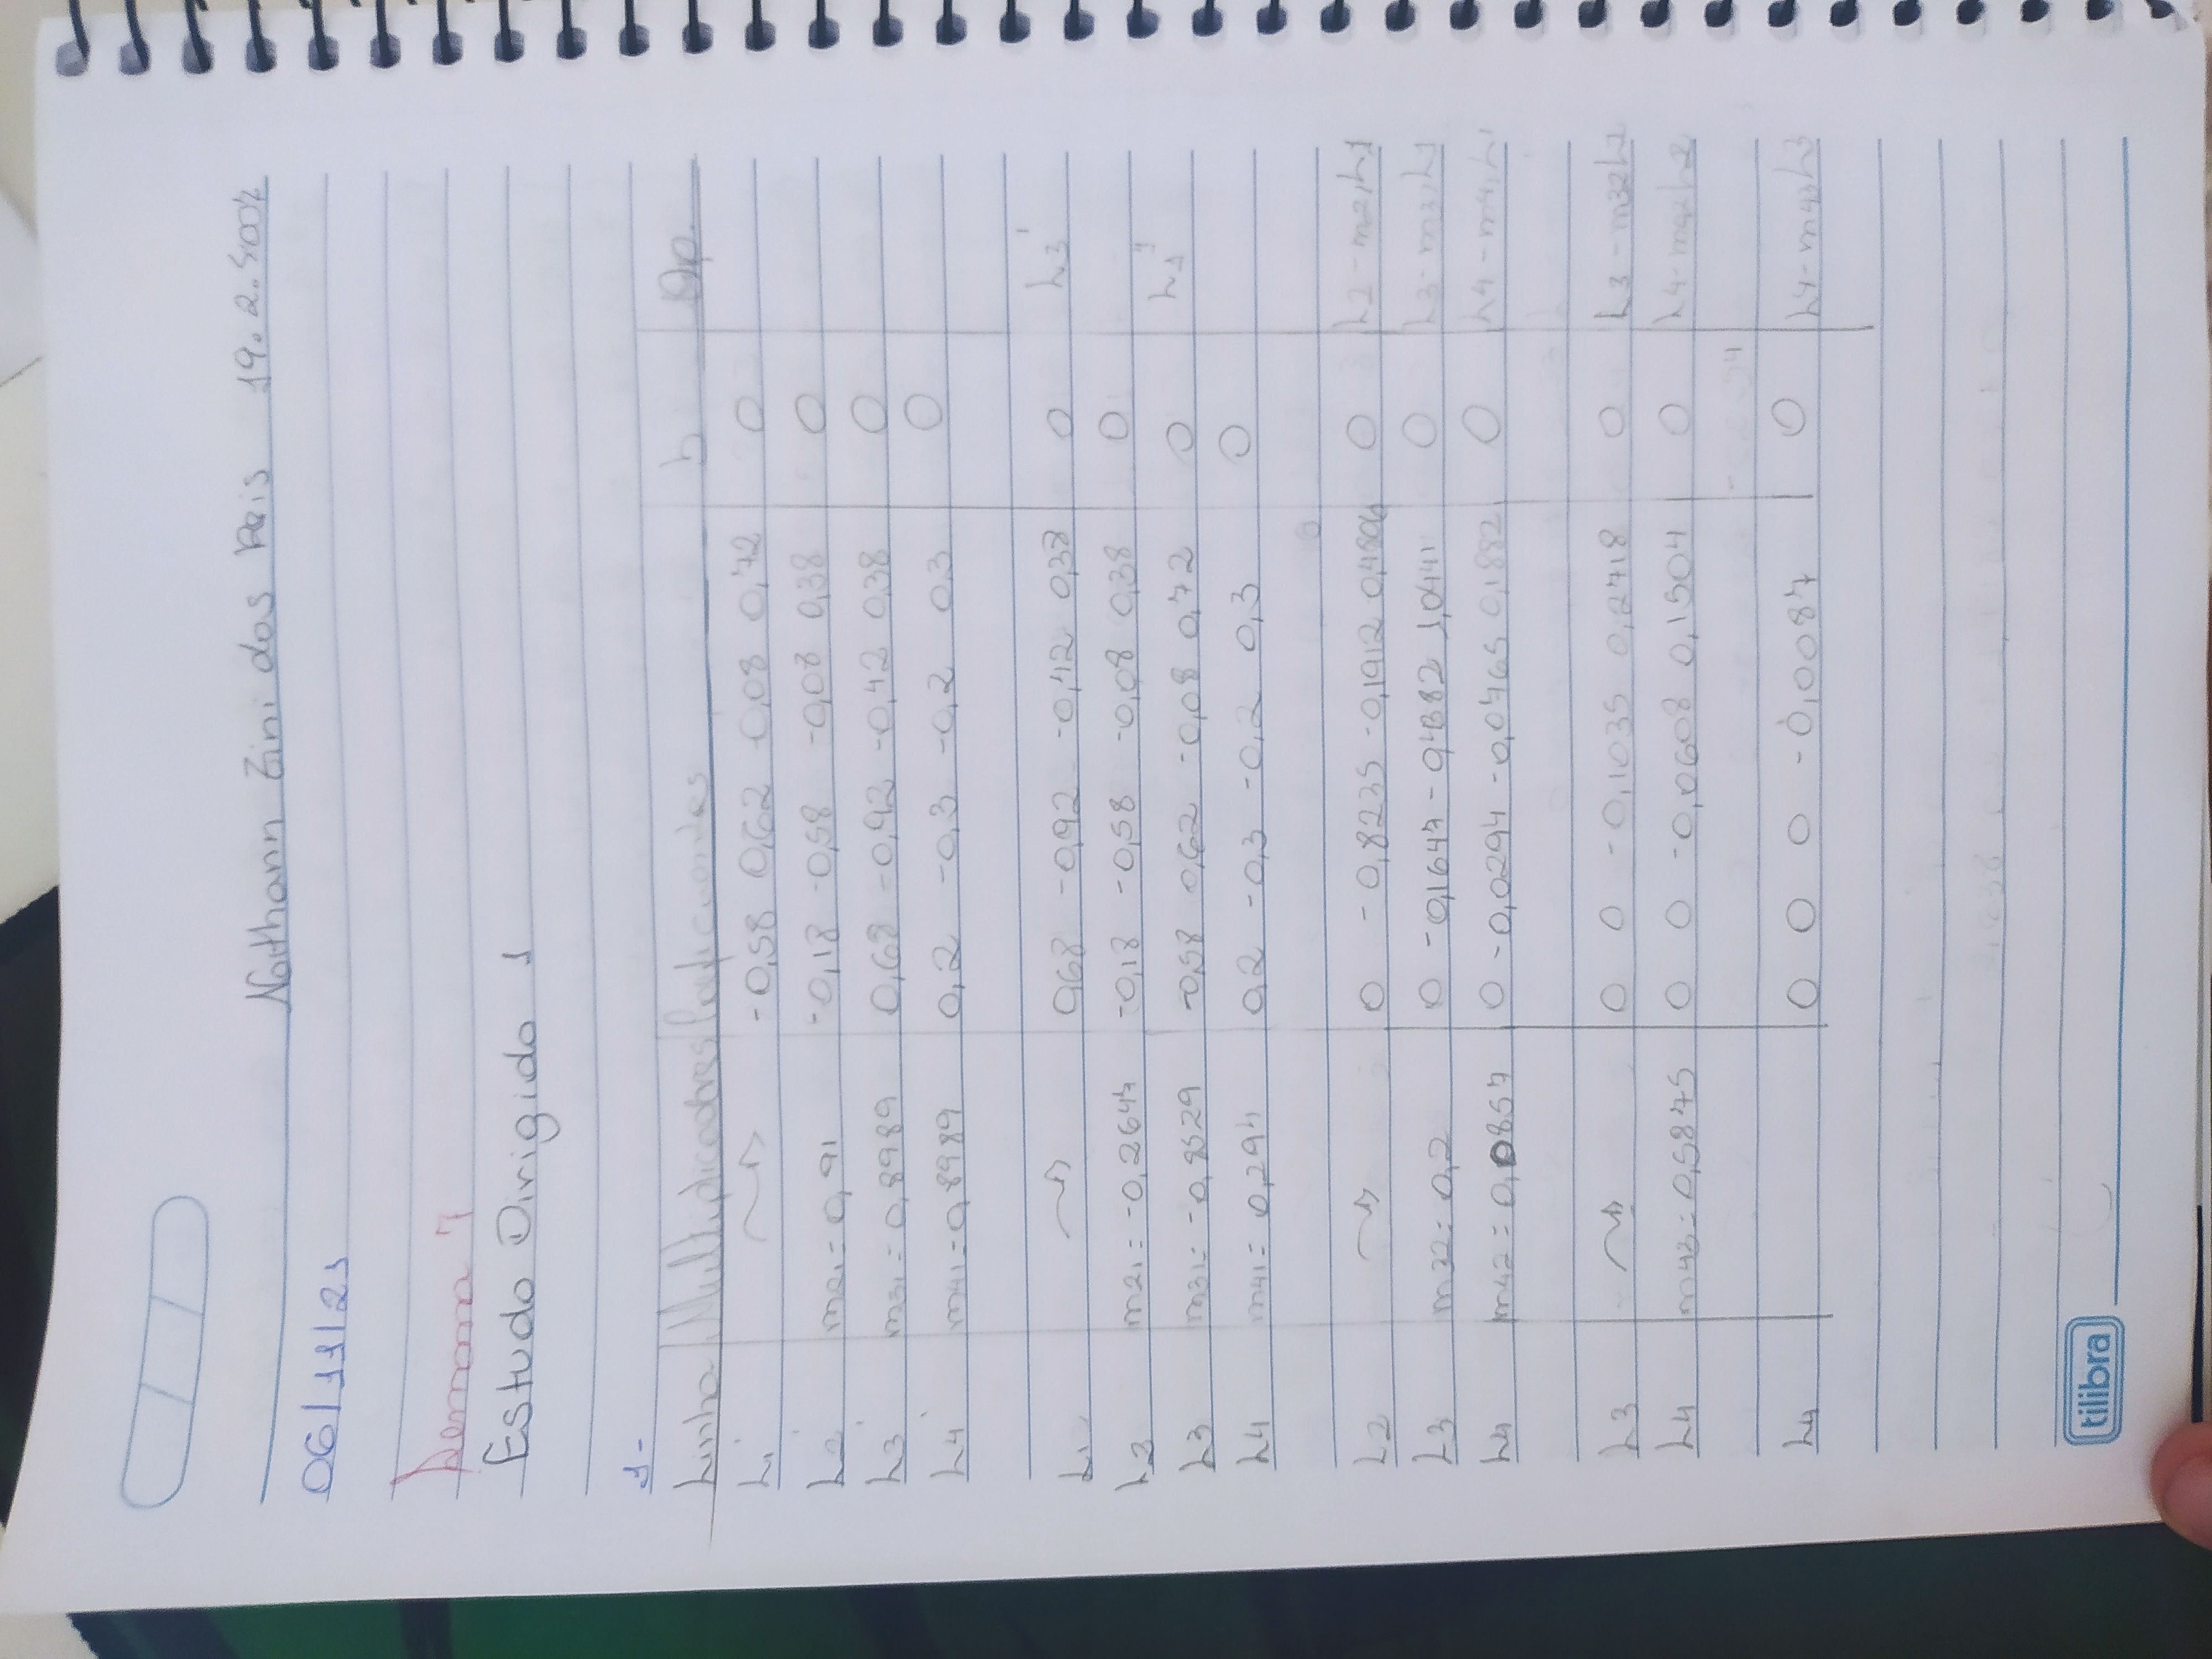 Nathann Zini dos Reis 19.2.4007
06/11/21
Semana 7
Estudo Dirigido 1
1-
Linha Multiplicadores Coeficientes b Op.
L1' -0,58 0,62 -0,08 0,72 0
L2' m21 = 0,91 -0,18 -0,58 -0,08 0,38 0
L3' m31 = 0,8989 0,68 -0,92 -0,42 0,38 0
L4' m41 = 0,8989 0,2 -0,3 -0,2 0,3 0
L1 0,68 -0,92 -0,42 0,38 0 L3'
L2 m21 = -0,2647 -0,18 -0,58 -0,08 0,38 0
L3 m31 = -0,8529 -0,58 0,62 -0,08 0,72 0 L1'
L4 m41 = 0,294 0,2 -0,3 -0,2 0,3 0
L2 0 -0,8235 -0,1912 0,4806 0 L2-m21L1
L3 m32 = 0,2 0 -0,1647 -0,4382 1,0441 0 L3-m31L1
L4 m42 = 0,0857 0 -0,0294 -0,0765 0,1882 0 L4-m41L1
L3 0 0 -0,1035 0,2718 0 L3-m32L2
L4 m43 = 0,5875 0 0 -0,0608 0,1504 0 L4-m42L2
L4 0 0 0 -0,0087 0 L4-m43L3
tilibra